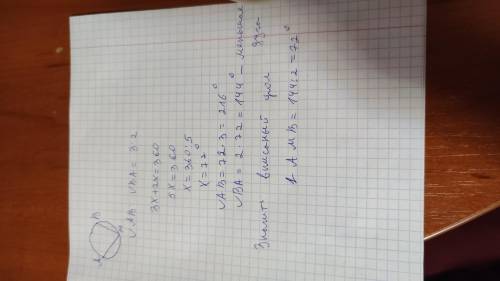 A B M
∪AB ∪BA = 3:2
3x+2x=360
5x=360
x=360:5
x=72°
∪AB = 72·3 = 216°
∪BA = 2·72 = 144° – меньшая дуга
Значит вписаный угол
∠AMB = 144:2 = 72°